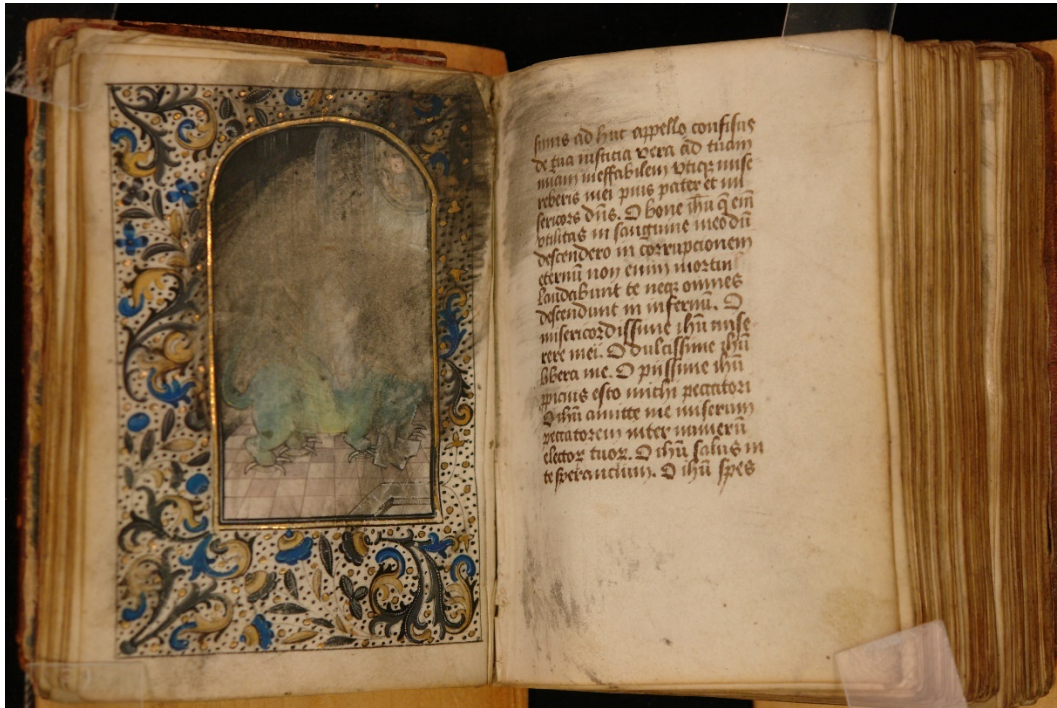 simis ad huc appello confisus
de tua iusticia vera ad tuam
niam ineffabilem vtiqz mise
reberis mei pius pater et mi
sericors dn̄s. O bone ih̄u q̄ em̄
vtilitas in sanguine meo dū
descendero in corrupcionem
eternū non enim mortui
laudabunt te neqz omnes
descendunt in infernū. O
misericordissime ih̄u mise
rere mei. O dulcissime ih̄u
libera me. O piissime ih̄u
ꝓpicius esto michi peccatori
O ih̄u amitte me miserum
peccatorem inter numerū
electoꝝ tuoꝝ. O ih̄u salus in
te sperancium. O ih̄u spes